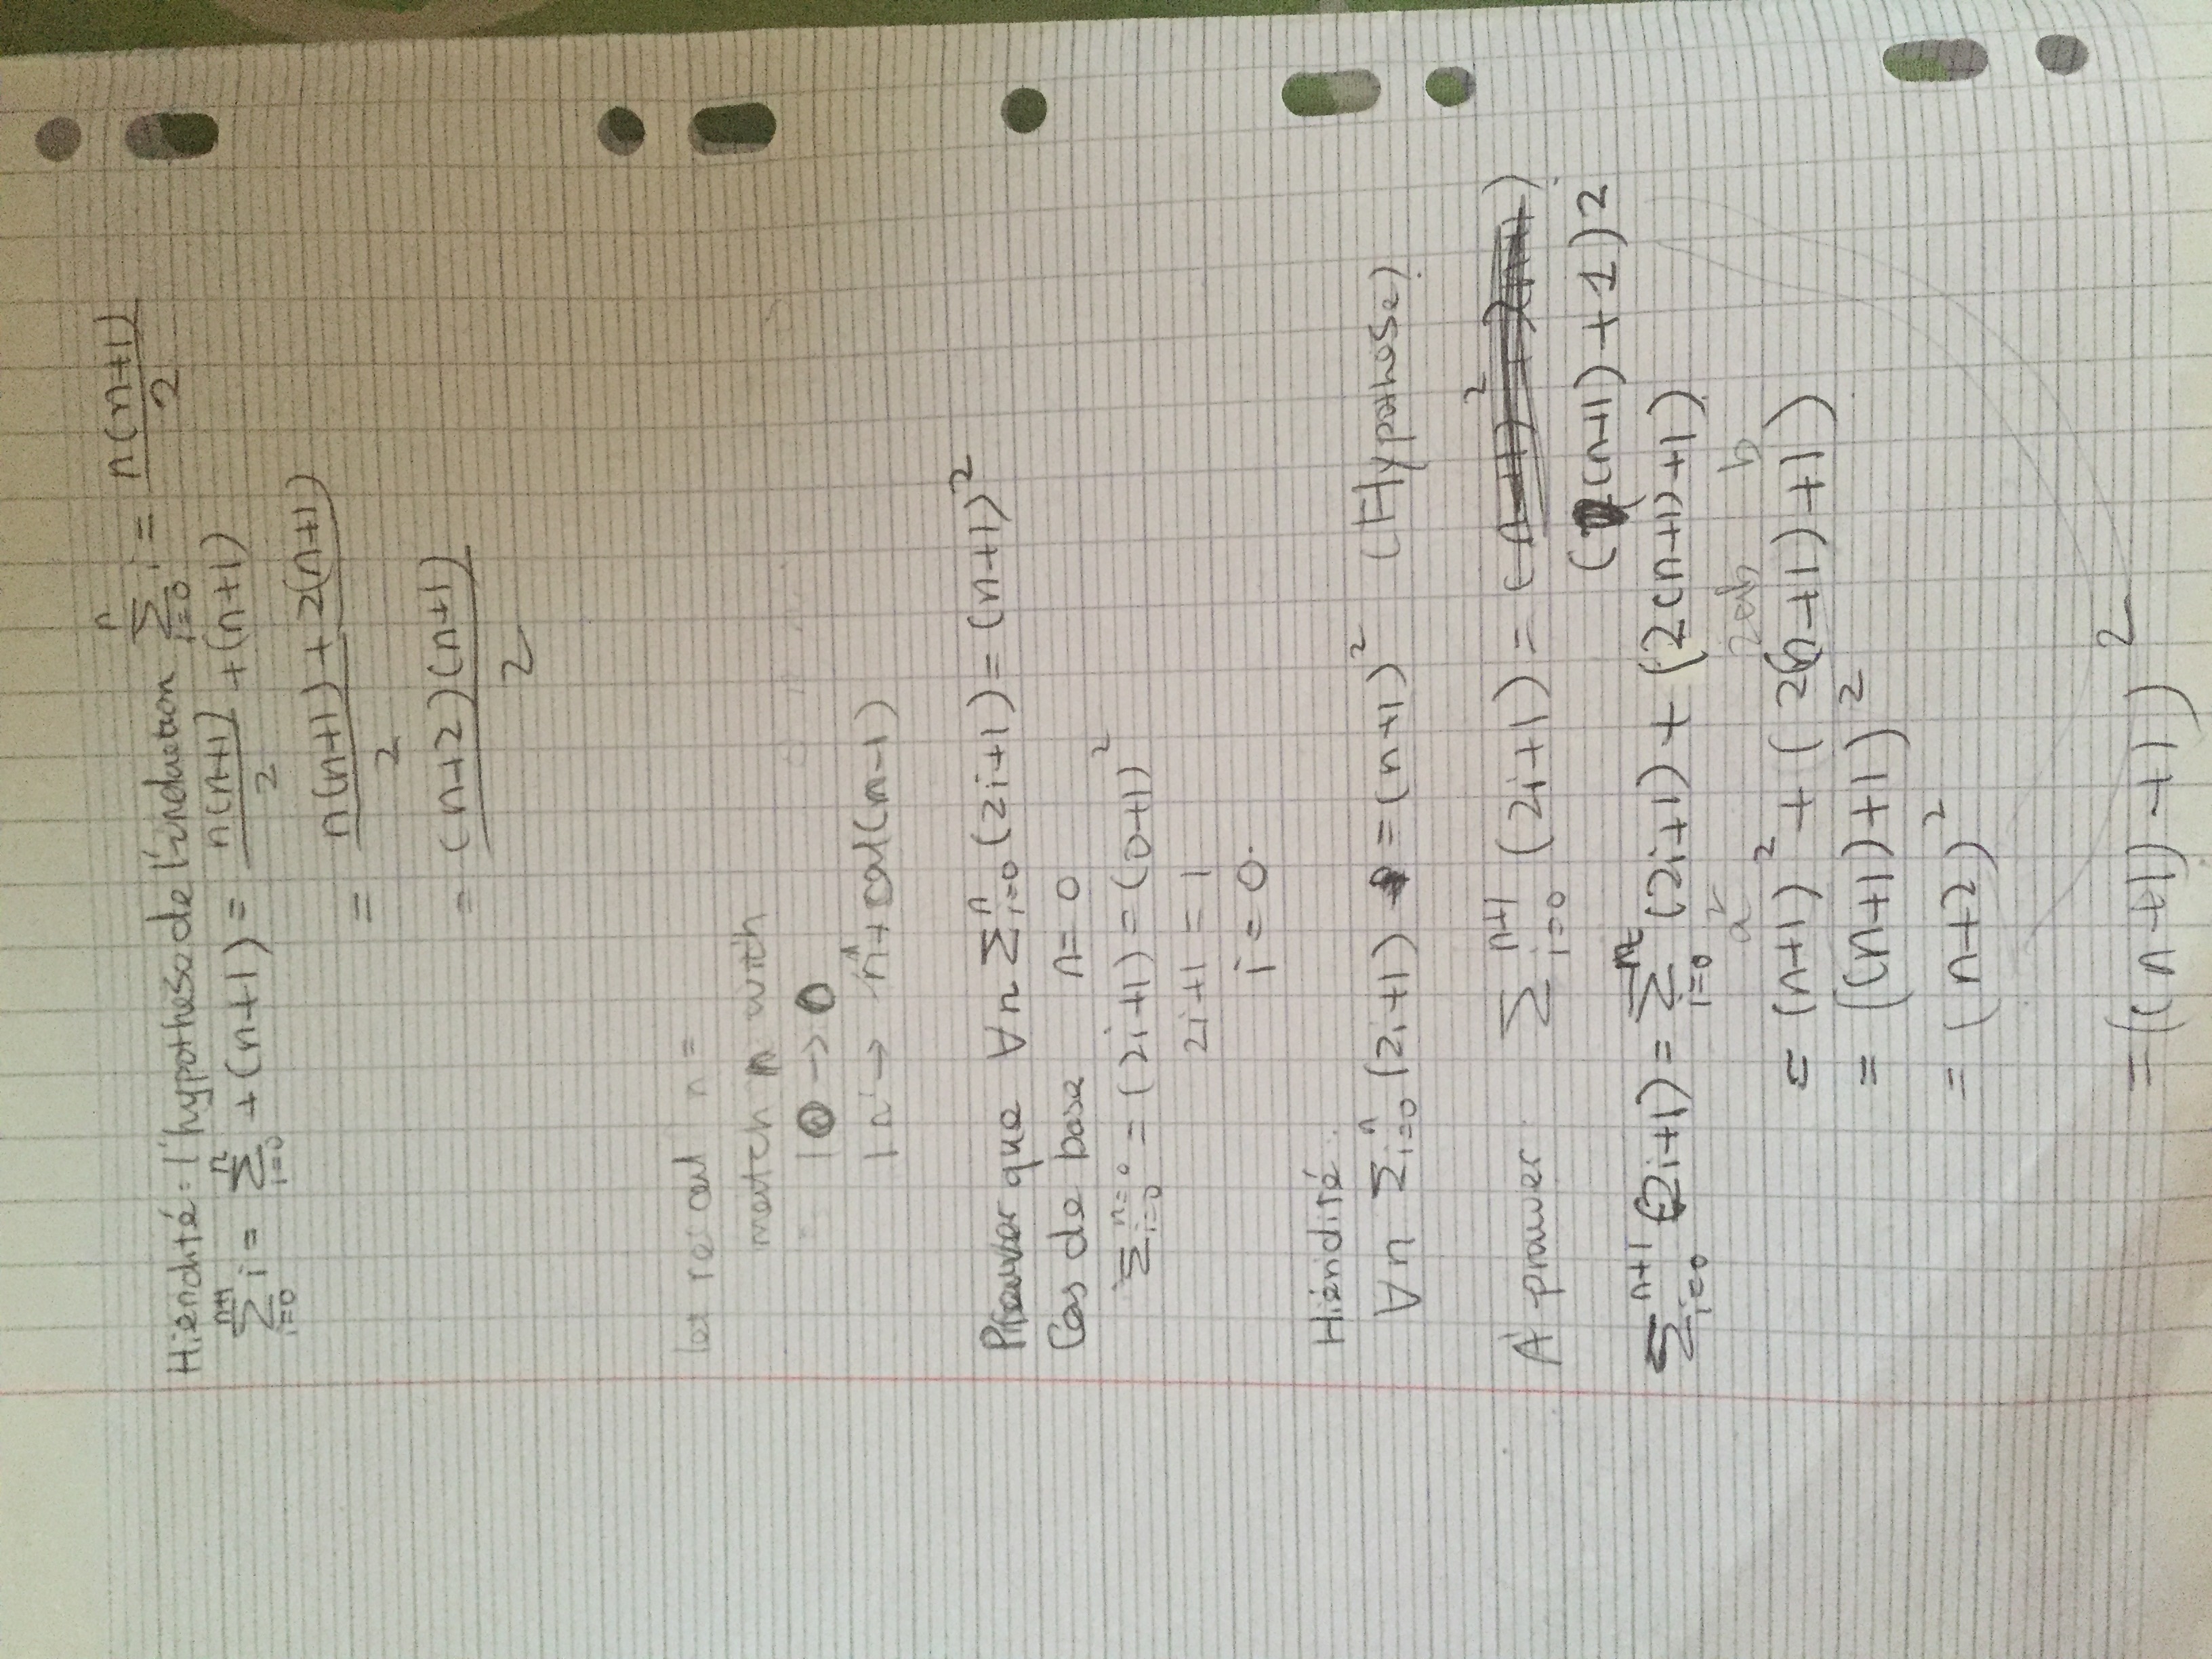 Hiérédité : l'hypothese de l'induction ∑_{i=0}^{n} i = n(n+1)/2
∑_{i=0}^{n+1} i = ∑_{i=0}^{n} + (n+1) = n(n+1)/2 + (n+1)
= (n(n+1) + 2(n+1))/2
= (n+2)(n+1)/2
let rec cal n =
match n with
| 0 → 0
| n → n + cal(n-1)
Prouver que ∀n ∑_{i=0}^{n} (2i+1) = (n+1)²
Cas de base n = 0
∑_{i=0}^{n=0} = (2i+1) = (0+1)²
2i+1 = 1
i = 0.
Hiérédité.
∀n ∑_{i=0}^{n} (2i+1) = (n+1)² (Hypothese)
A prouver ∑_{i=0}^{n+1} (2i+1) =
((n+1)+1)2
∑_{i=0}^{n+1} (2i+1) = ∑_{i=0}^{n} (2i+1) + (2(n+1)+1)
a² 2ab b
= (n+1)² + (2(n+1)+1)
= ((n+1)+1)²
= (n+2)²
= ((n+1)+1)²